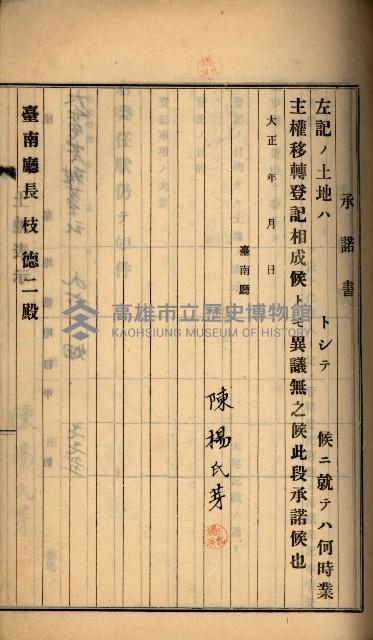 承諾書
左記ノ土地ハ　　トシテ　　候ニ就テハ何時業
主權移轉登記相成候トモ異議無之候此段承諾候也
大正　年　月　日
臺南廳
陳楊氏芽
臺南廳長枝德二殿
高雄市立歷史博物館
KAOHSIUNG MUSEUM OF HISTORY